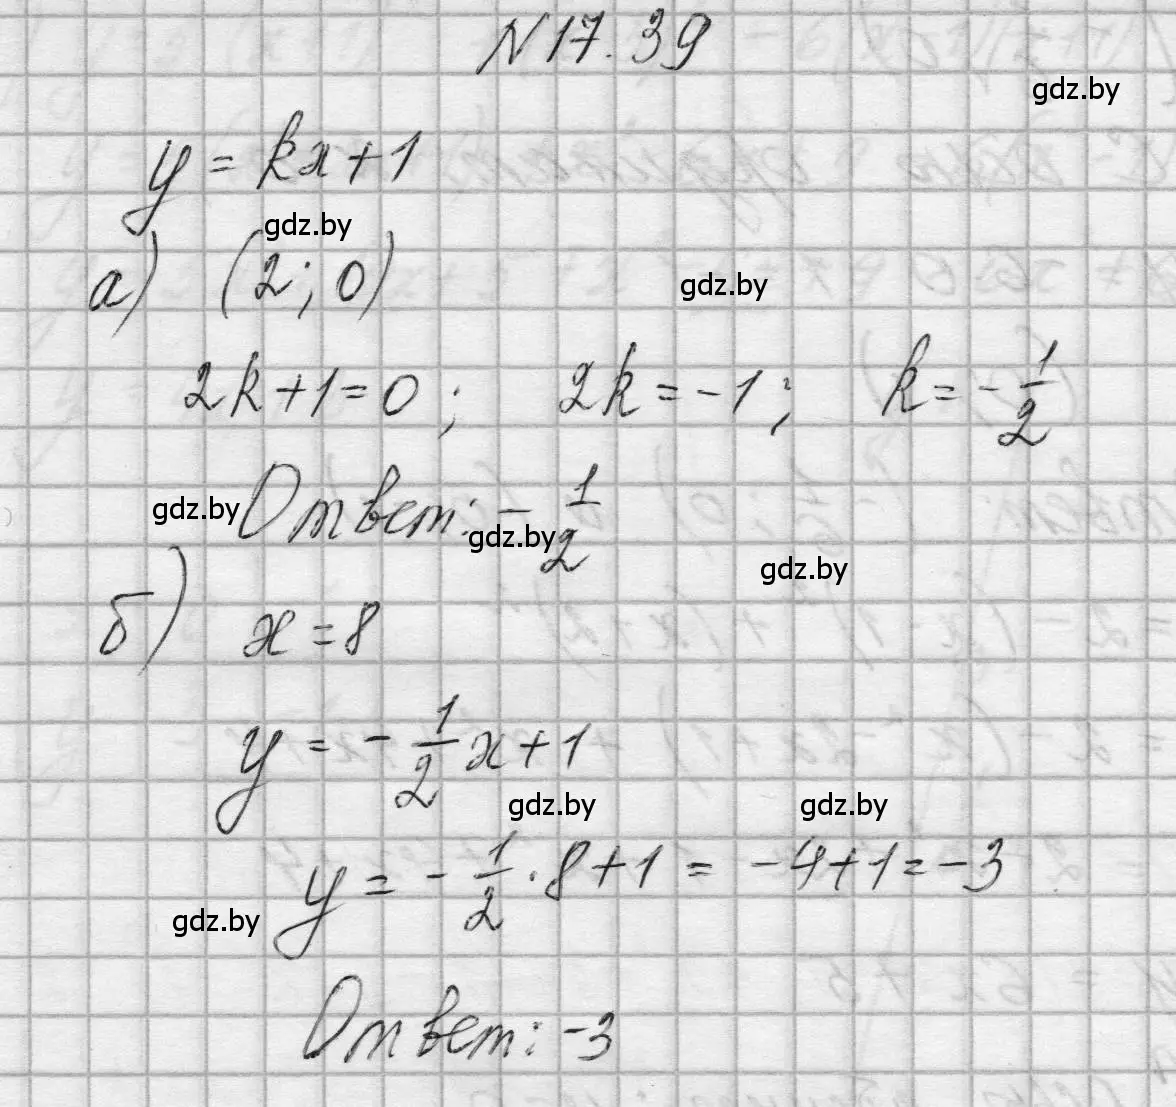 N 17.39
gdz.by
y = kx + 1
gdz.by
а) (2; 0)
gdz.by
2k + 1 = 0; 2k = -1; k = -1/2
gdz.by Ответ: -1/2
gdz.by
gdz.by
б) x = 8
y = -1/2 x + 1
gdz.by gdz.by
y = -1/2 · 8 + 1 = -4 + 1 = -3
gdz.by
Ответ: -3